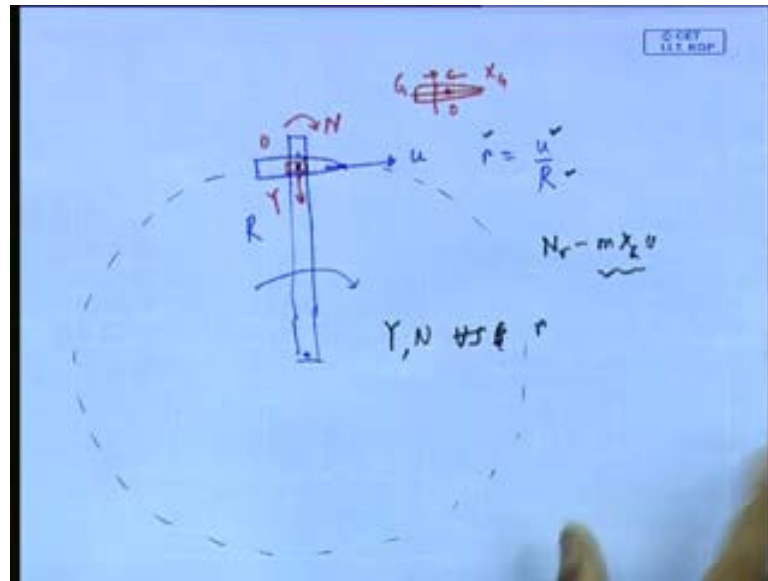 © CET
I.I.T. KGP
G
X_G
O
N
O
u
r = u/R
Y
R
N_r - m X_G u
Y, N vs r